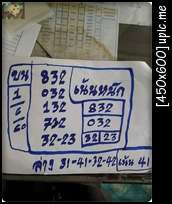 บน 832
1 032 เน้นหนัก
6 132 832
60 732 032
32-23 32 23
ล่าง 31-41-32-42 เน้น 41
[450x600] upic.me